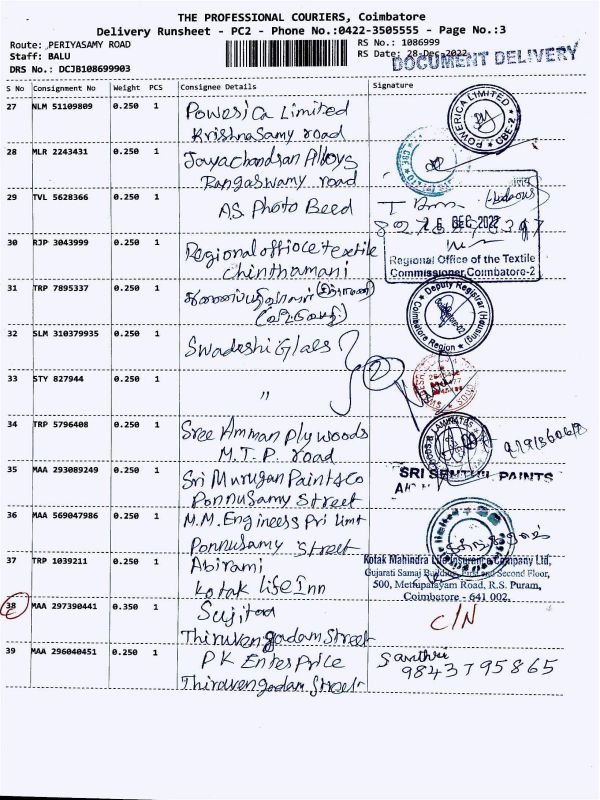 THE PROFESSIONAL COURIERS, Coimbatore
Delivery Runsheet - PC2 - Phone No.:0422-3505555 - Page No.:3
Route: PERIYASAMY ROAD
RS No.: 1086999
Staff: BALU
RS Date: 28-Dec-2022
DOCUMENT DELIVERY
DRS No.: DCJB108699903
S No Consignment No Weight PCS Consignee Details Signature
27 NLM 51109809 0.250 1 Powesica Limited
Krishnasamy road
POWERICA LIMITED CBE-2
28 MLR 2243431 0.250 1 Jayachandsan Alloys
Rangaswamy road
29 TVL 5628366 0.250 1 A.S. Photo Beed
30 RJP 3043999 0.250 1 Regional offioce textile
Chinthamani
DEC 2022
Regional Office of the Textile
Commissioner, Coimbatore-2
31 TRP 7895337 0.250 1
Deputy Registrar (Housing) Coimbatore Region
32 SLM 310379935 0.250 1 Swadeshi Glaes
33 STY 827944 0.250 1 "
2
34 TRP 5796408 0.250 1 Sree Amman Plywoods
M.T.P. road
35 MAA 293089249 0.250 1 Sri Murugan Paints & Co
Ponnusamy Street
SRI SENTHIL PAINTS
36 MAA 569047986 0.250 1 M.M. Engineess Pri limt
Ponnusamy Street
37 TRP 1039211 0.250 1 Abirami
Kotak Life Inn
Kotak Mahindra Life Insurance Company Ltd,
Gujarati Samaj Building, First and Second Floor,
500, Mettupalayam Road, R.S. Puram,
Coimbatore - 641 002.
38 MAA 297390441 0.350 1 Sujitoa
Thiruvengadam Street
C/N
39 MAA 296040451 0.250 1 P K Entes Price
Thiruvengadam Street
Santhri
9843795865